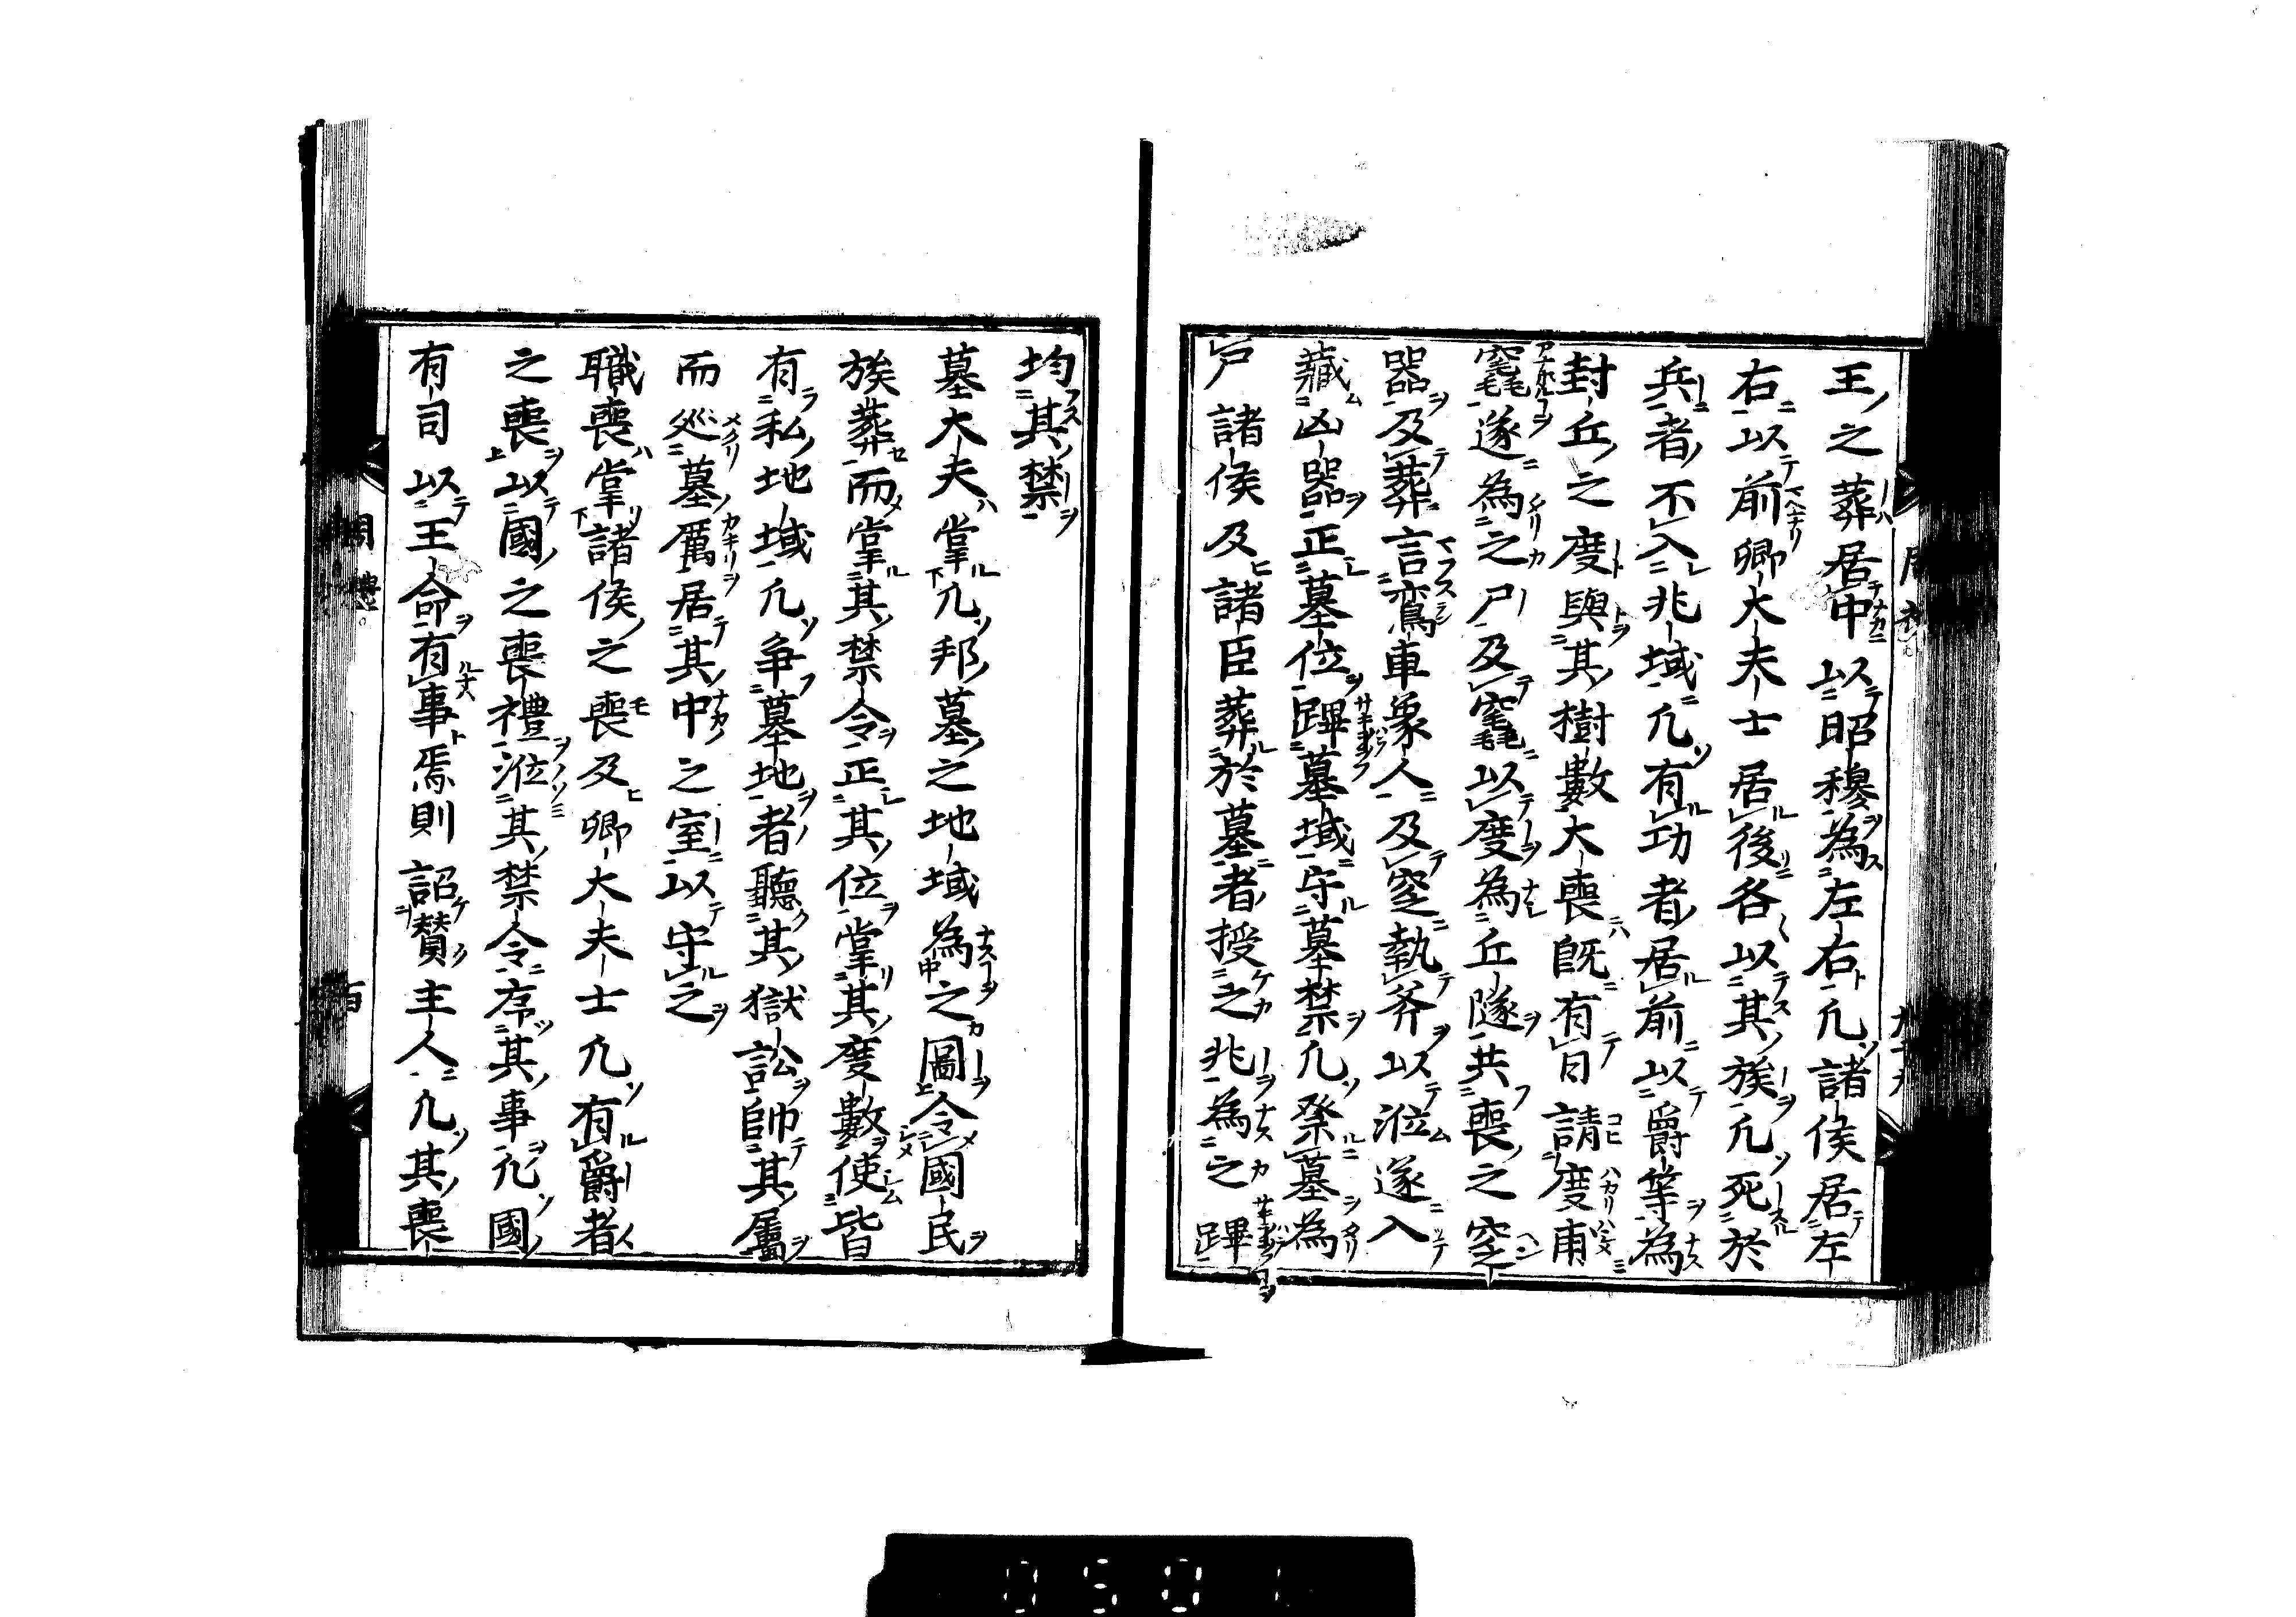 王之葬居中以昭穆為左右凡諸侯居左
右以前卿大夫士居後各以其族凡死於
兵者不入兆域凡有功者居前以爵等為
封丘之度與其樹數大喪既有日請度甫
竁遂為之尸及竁以度為丘隧共喪之窆
器及葬言鸞車象人及窆執斧以涖遂入
藏凶器正墓位蹕墓域守墓禁凡祭墓為
尸諸侯及諸臣葬於墓者授之兆為之蹕
均其禁
墓大夫掌凡邦墓之地域為之圖令國民
族葬而掌其禁令正其位掌其度數使皆
有私地域凡争墓地者聽其獄訟帥其屬
而巡墓厲居其中之室以守之
職喪掌諸侯之喪及卿大夫士凡有爵者
之喪以國之喪禮涖其禁令序其事凡國
有司以王命有事焉則詔贊主人凡其喪
周禮
百
0501